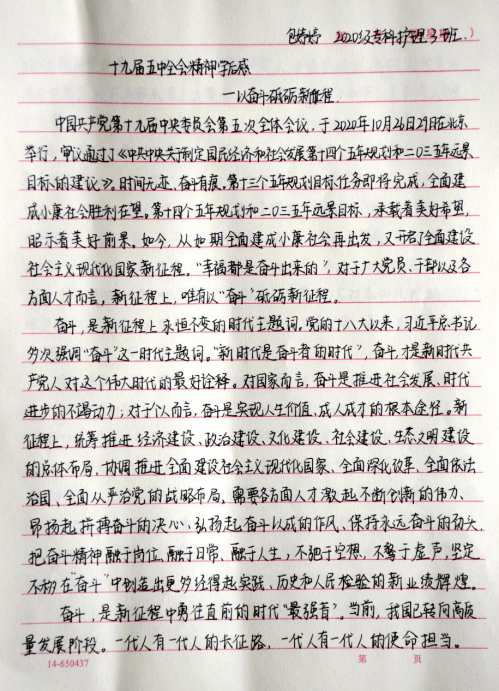 包婷婷 2020级专科护理3班.
十九届五中全会精神学后感
—以奋斗砥砺新征程.
中国共产党第十九届中央委员会第五次全体会议,于2020年10月26日29日在北京
举行,审议通过了《中共中央关于制定国民经济和社会发展第十四个五年规划和二〇三五年远景
目标的建议》。时间无迹,奋斗有痕。第十三个五年规划目标任务即将完成,全面建
成小康社会胜利在望。第十四个五年规划和二〇三五年远景目标,承载着美好希望,
昭示着美好前景。如今,从如期全面建成小康社会再出发,又开启了全面建设
社会主义现代化国家新征程。“幸福都是奋斗出来的”,对于广大党员、干部以及各
方面人才而言,新征程上,唯有以“奋斗”砥砺新征程。
奋斗,是新征程上永恒不变的时代主题词。党的十八大以来,习近平总书记
多次强调“奋斗”这一时代主题词。“新时代是奋斗者的时代”,奋斗才是新时代共
产党人对这个伟大时代的最好诠释。对国家而言,奋斗是推进社会发展、时代
进步的不竭动力;对于个人而言,奋斗是实现人生价值、成人成才的根本途径。新
征程上,统筹推进经济建设、政治建设、文化建设、社会建设、生态文明建设
的总体布局,协调推进全面建设社会主义现代化国家、全面深化改革、全面依法
治国、全面从严治党的战略布局,需要各方面人才激起不断创新的伟力、
昂扬起拼搏奋斗的决心、弘扬起奋斗以成的作风、保持永远奋斗的劲头,
把奋斗精神融于岗位、融于日常、融于人生,不驰于空想、不骛于虚声,坚定
不移在“奋斗”中创造出更多经得起实践、历史和人民检验的新业绩辉煌。
奋斗,是新征程中勇往直前的时代“最强音”。当前,我国已转向高质
量发展阶段。一代人有一代人的长征路,一代人有一代人的使命担当。
14-650437 第 页